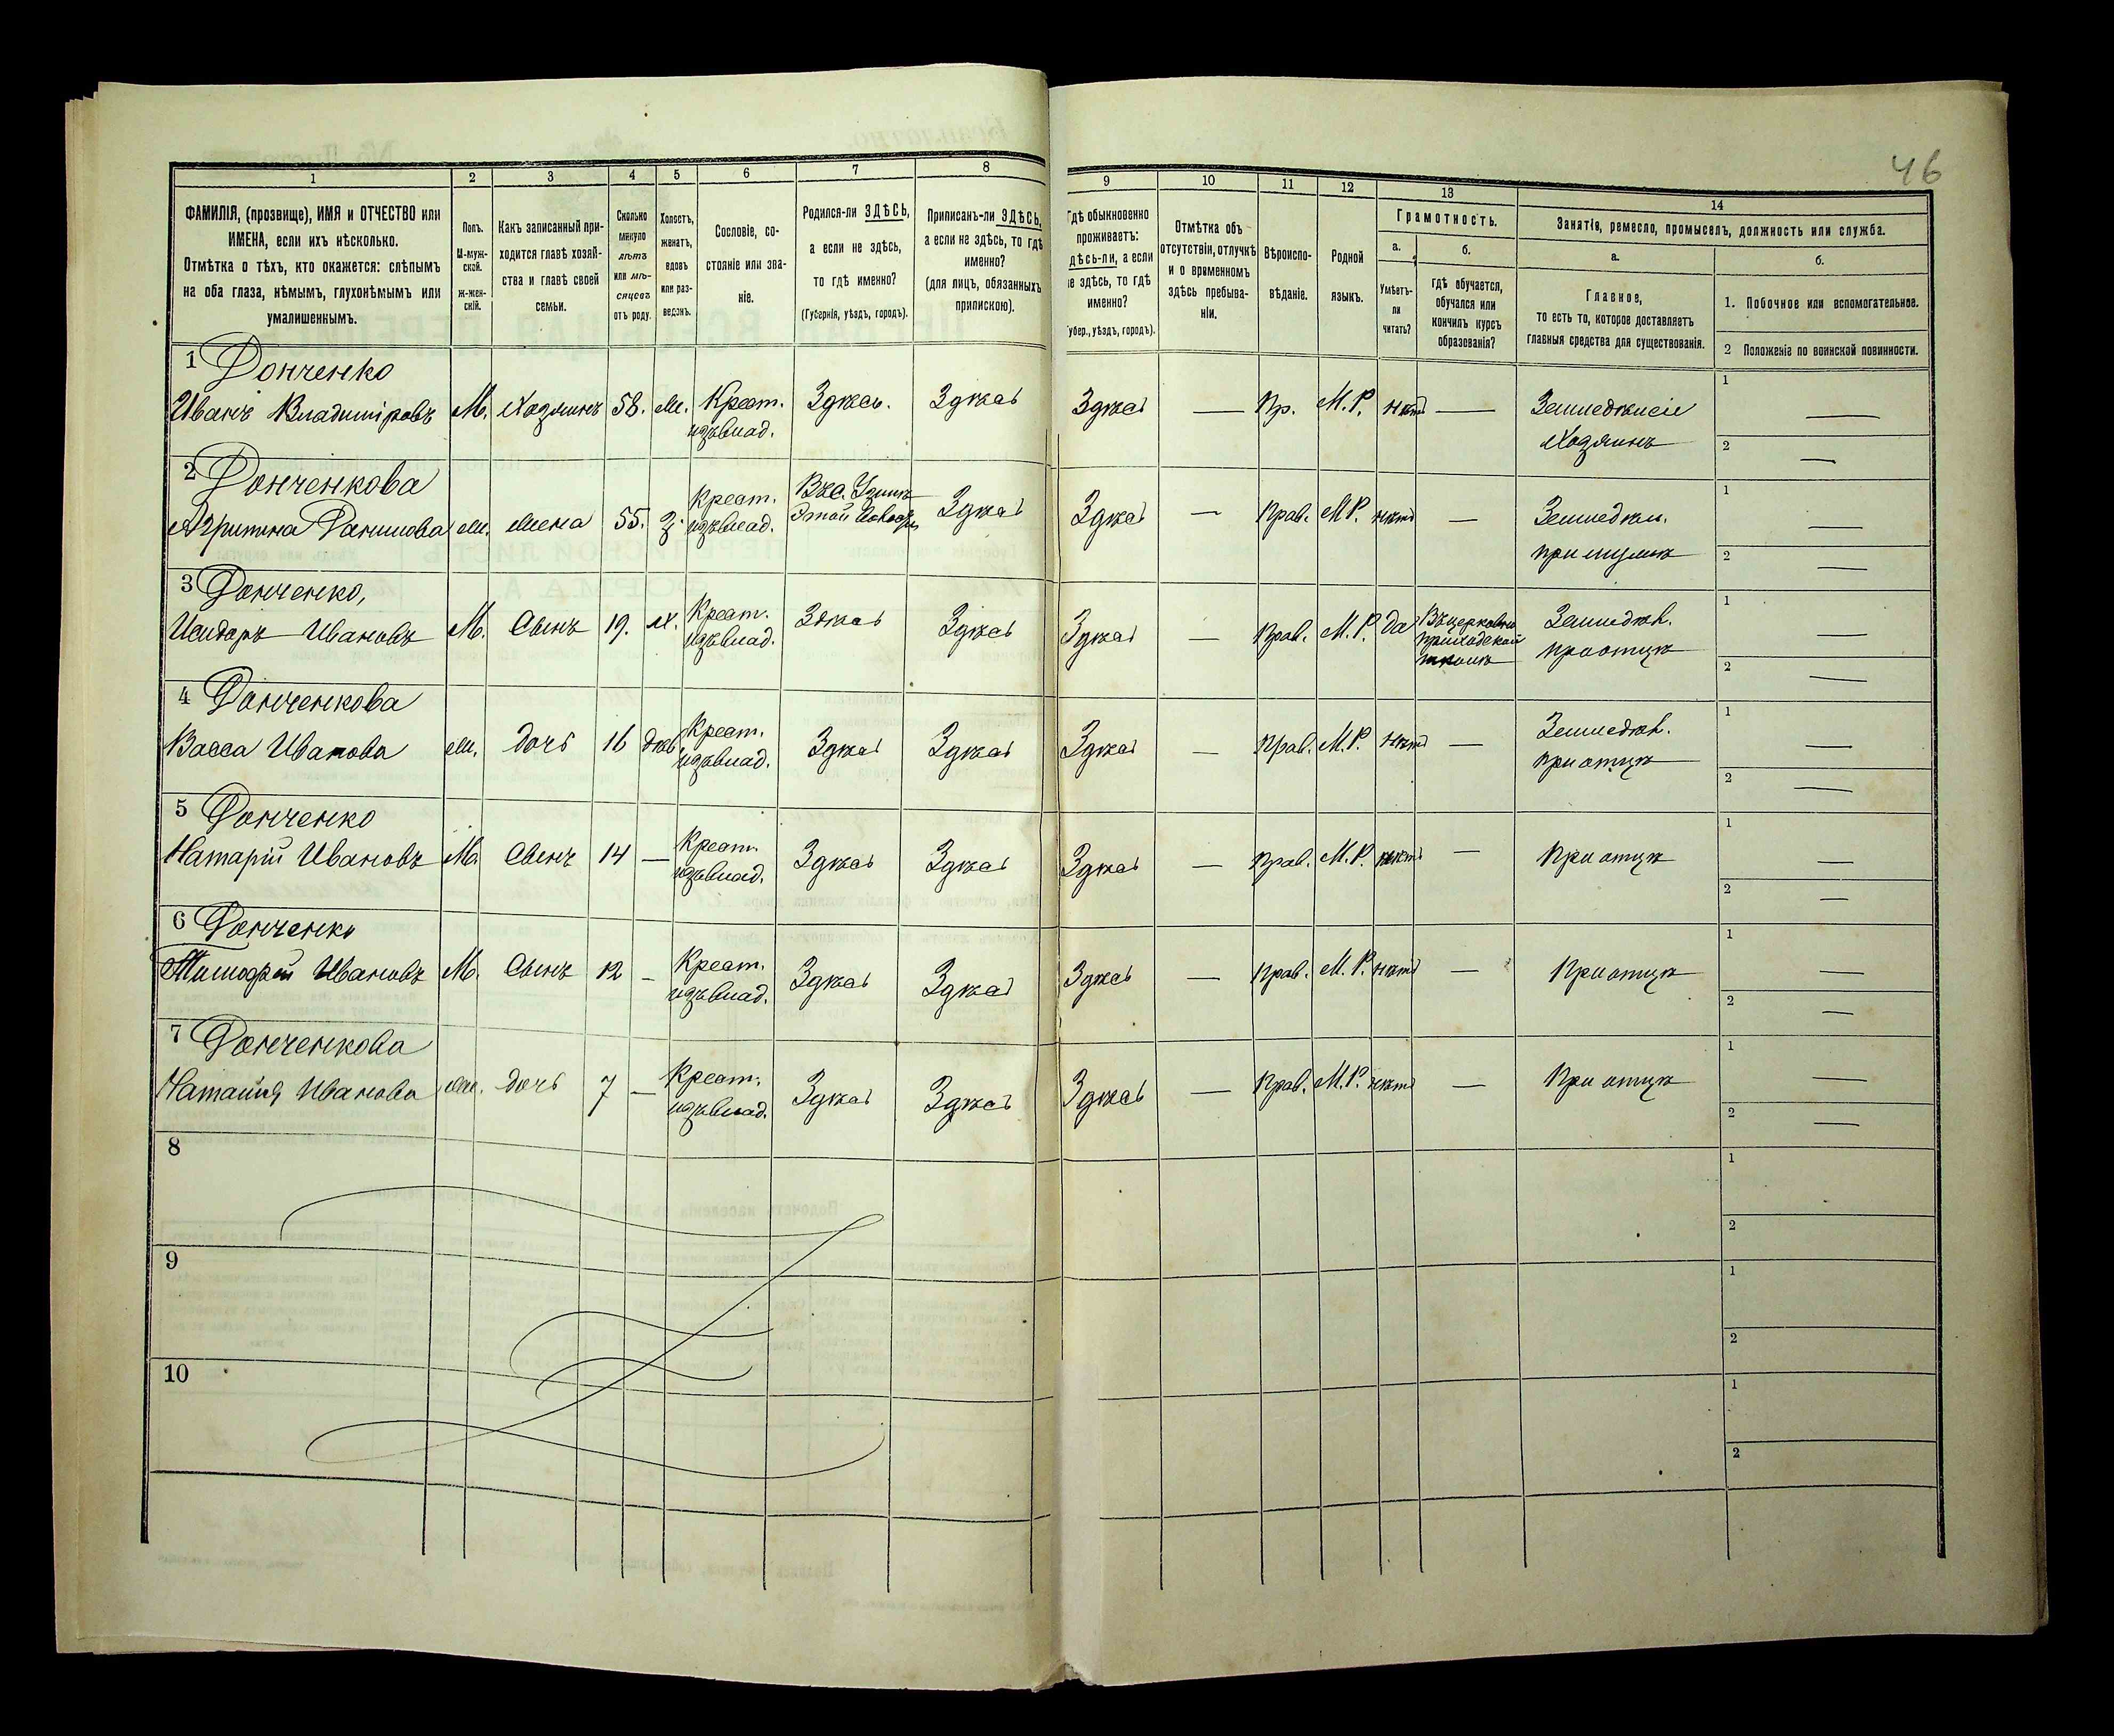 46
1 2 3 4 5 6 7 8 9 10 11 12 13 14
ФАМИЛІЯ, (прозвище), ИМЯ и ОТЧЕСТВО или
ИМЕНА, если ихъ нѣсколько.
Отмѣтка о тѣхъ, кто окажется: слѣпымъ
на оба глаза, нѣмымъ, глухонѣмымъ или
умалишеннымъ.
Полъ.
М-муж-
ской.
ж-жен-
скій.
Какъ записанный при-
ходится главѣ хозяй-
ства и главѣ своей
семьи.
Сколько
минуло
лѣтъ
или мѣ-
сяцевъ
отъ роду.
Холостъ,
женатъ,
вдовъ
или раз-
веденъ.
Сословіе, со-
стояніе или зва-
ніе.
Родился-ли ЗДѢСЬ,
а если не здѣсь,
то гдѣ именно?
(Губернія, уѣздъ, городъ).
Приписанъ-ли ЗДѢСЬ,
а если не здѣсь, то гдѣ
именно?
(для лицъ, обязанныхъ
припискою).
Гдѣ обыкновенно
проживаетъ:
здѣсь-ли, а если
не здѣсь, то гдѣ
именно?
Губер., уѣздъ, городъ).
Отмѣтка объ
отсутствіи, отлучкѣ
и о временномъ
здѣсь пребыва-
ніи.
Вѣроиспо-
вѣданіе.
Родной
языкъ.
Грамотность.
а.
Умѣетъ-
ли
читать?
б.
гдѣ обучается,
обучался или
кончилъ курсъ
образованія?
Занятія, ремесло, промыселъ, должность или служба.
а.
Главное,
то есть то, которое доставляетъ
главныя средства для существованія.
б.
1. Побочное или вспомогательное.
2 Положеніе по воинской повинности.
1 Донченко
Иванъ Владиміровъ М. Хозяинъ 58. ж. Крест. Здѣсь. Здѣсь Здѣсь — Пр. М.Р. нѣтъ — Земледѣліе 1 —
изъ влад. Хозяинъ 2 —
2 Донченкова
Агрипина Данилова ж. жена 55. З. Крест. Здѣсь Здѣсь — Прав. М.Р. нѣтъ — Земледѣл. 1 —
изъ влад. при мужѣ 2 —
3 Донченко,
Исидоръ Ивановъ М. Сынъ 19. х. Крест. Здѣсь Здѣсь Здѣсь — Прав. М.Р. да Въ церковно Земледѣл. 1 —
изъ влад. приходской при отцѣ 2 —
школѣ
4 Донченкова
Васса Иванова ж. дочь 16 дѣв. Крест. Здѣсь Здѣсь Здѣсь — Прав. М.Р. нѣтъ — Земледѣл. 1 —
изъ влад. при отцѣ 2 —
5 Донченко
Натарій Ивановъ М. Сынъ 14 — Крест. Здѣсь Здѣсь Здѣсь — Прав. М.Р. нѣтъ — При отцѣ 1 —
изъ влад. 2 —
6 Донченко
Тимофей Ивановъ М. Сынъ 12 — Крест. Здѣсь Здѣсь Здѣсь — Прав. М.Р. нѣтъ — При отцѣ 1 —
изъ влад. 2 —
7 Донченкова
Наталія Иванова ж. дочь 7 — Крест. Здѣсь Здѣсь Здѣсь — Прав. М.Р. нѣтъ — При отцѣ 1 —
изъ влад. 2 —
8 1
2
9 1
2
10 1
2